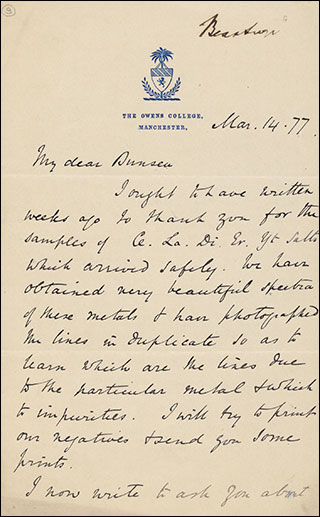 3
THE OWENS COLLEGE,
MANCHESTER,
Mar. 14. 77.
My dear Bunsen
I ought to have written
weeks ago to thank you for the
samples of Ce. La. Di. Er. Yt Salts
which arrived safely. We have
obtained very beautiful spectra
of these metals & have photographed
the lines in duplicate so as to
learn which are the lines due
to the particular metal & which
to impurities. I will try to print
our negatives & send you some
prints.
I now write to ask you about